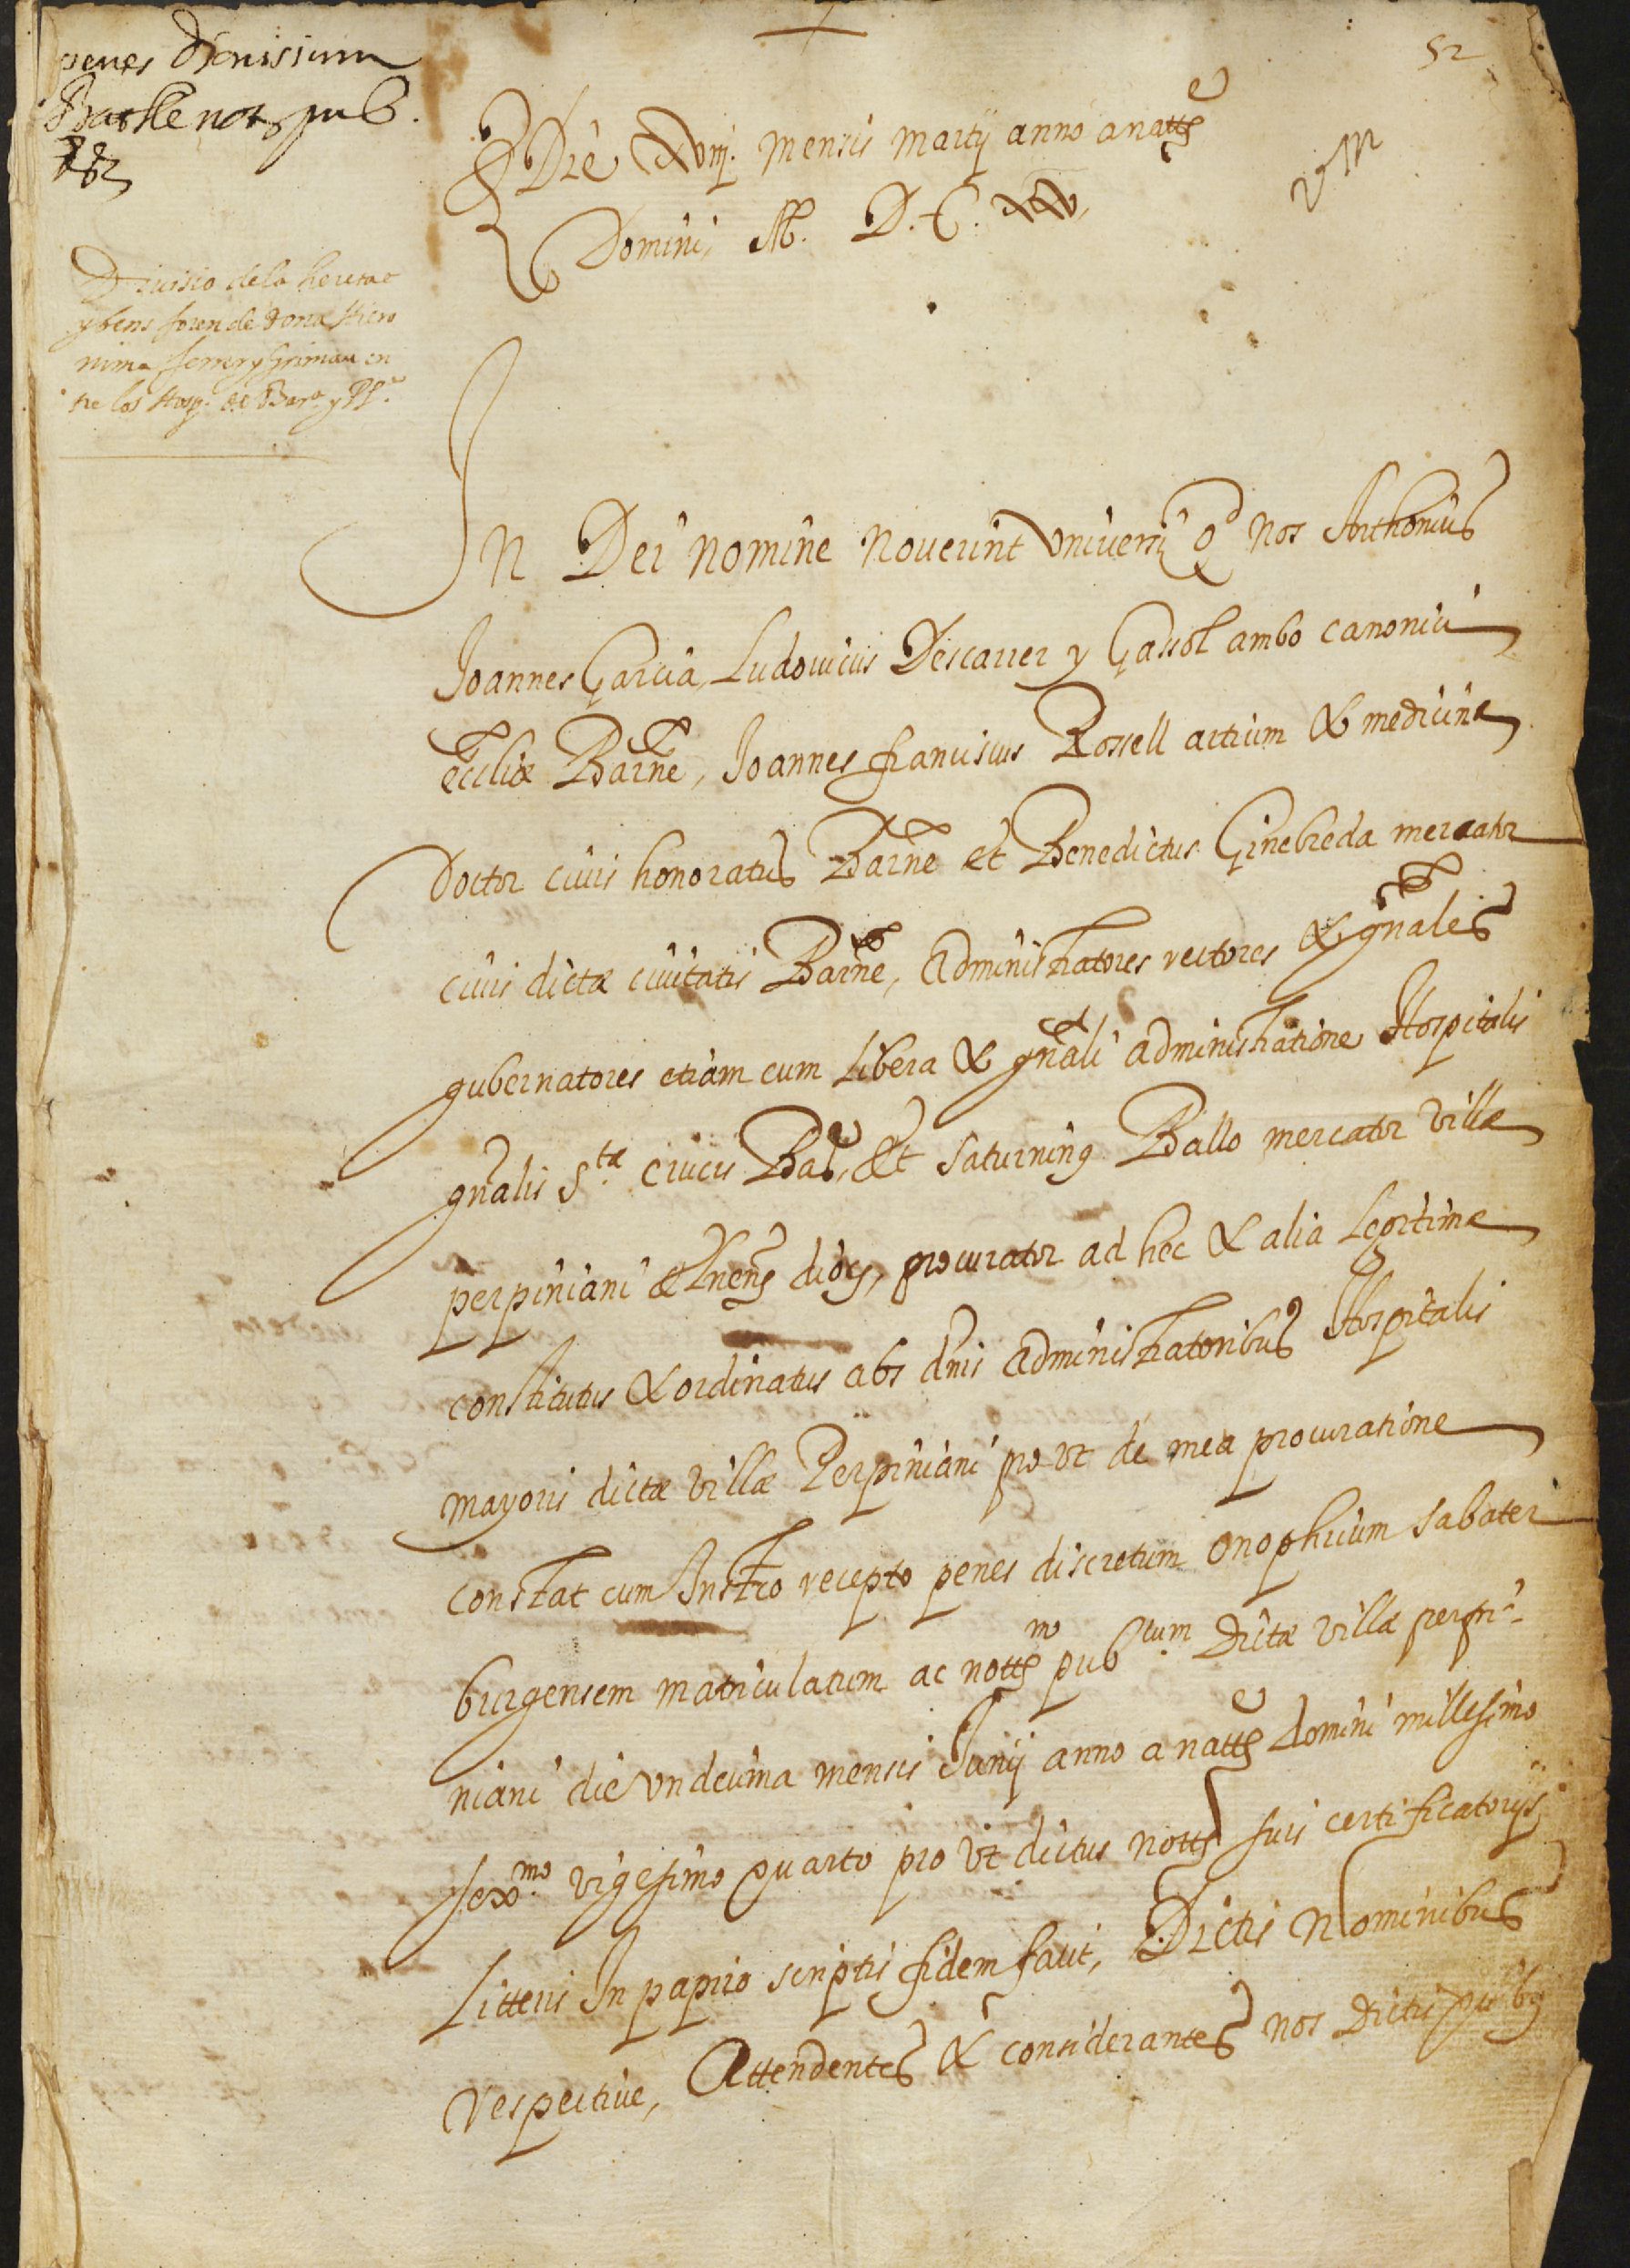 52
penes Dionisium
not. pub.
Divisio dela heretat
y bens foren de dona Hiero
nima ferrer y Grimau en
tre los Hosp. de Barª y Pª.
Die xviij. mensis martij anno a natte
Domini, M. D. C. xxv,
vM
IN Dei nomine Noverint universi Qd Nos Anthonius
Joannes Garcia, Ludovicus Descarrer y Gassol ambo canonici
eccliæ Barne, Joannes franciscus Rossell artium & medicine
Doctor civis honoratus Barne et Benedictus Ginebreda mercator
civis dictæ civitatis Barne, Administratores rectores & gnales
gubernatores etiam cum libera & gnali administratione Hospitalis
gnalis S.tæ Crucis Bar, Et Saturninꝯ Ballo mercator villæ
perpiniani Elnens diocs, procurator ad hec & alia legitime
constitutus & ordinatus abs dnis Administratoribus Hospitalis
mayoris dictæ villæ Perpiniani pro vt de mea procuratione
constat cum Instro recepto penes discretum Onophrium Sabater
burgensem matriculatum ac nott.m pub.cum Dictæ villæ perpi-
niani die vndecima mensis Junij anno a natte domini millesimo
sex.mo vigesimo quarto pro vt dictus nott suis certificatorijs
Litteris In papiro scriptis fidem facit, Dictis Nominibus
respective, Attendentes & considerantes nos Dictis